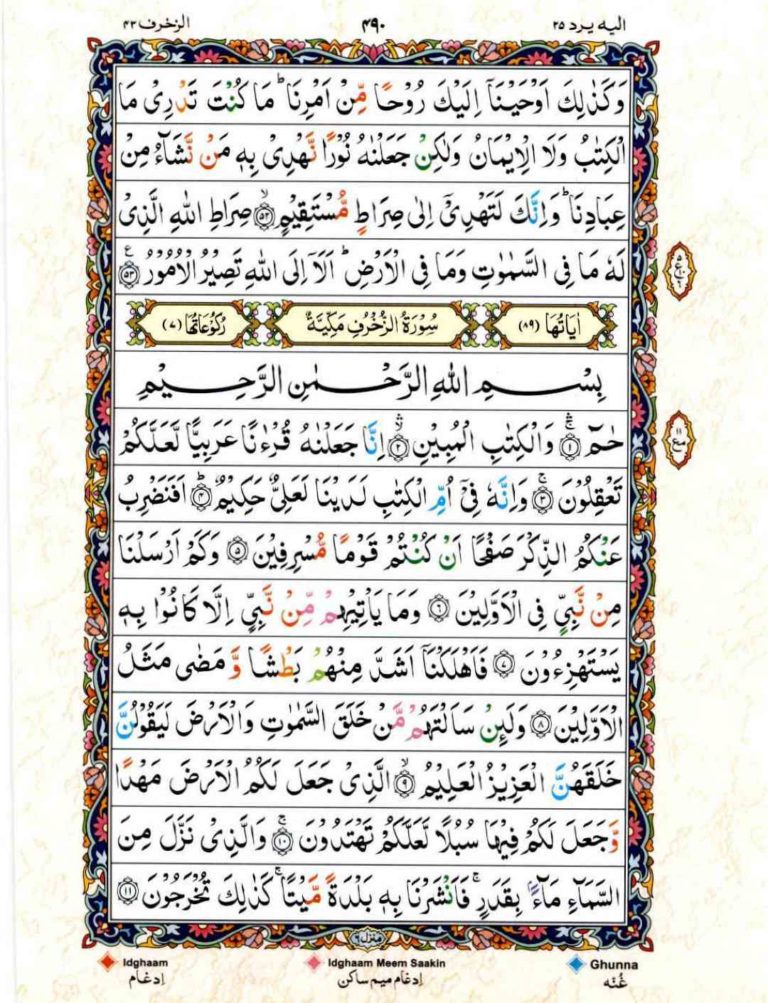 الیه یرد ۲۵
۴۹۰
الزخرف ۴۳
وَكَذٰلِكَ اَوْحَیْنَاۤ اِلَیْكَ رُوْحًا مِّنْ اَمْرِنَا ؕ مَا كُنْتَ تَدْرِیْ مَا
الْكِتٰبُ وَلَا الْاِیْمَانُ وَلٰكِنْ جَعَلْنٰهُ نُوْرًا نَّهْدِیْ بِهٖ مَنْ نَّشَآءُ مِنْ
عِبَادِنَا ؕ وَاِنَّكَ لَتَهْدِیْۤ اِلٰی صِرَاطٍ مُّسْتَقِیْمٍ ۙ﴿۵۲﴾ صِرَاطِ اللّٰهِ الَّذِیْ
لَهٗ مَا فِی السَّمٰوٰتِ وَمَا فِی الْاَرْضِ ؕ اَلَاۤ اِلَی اللّٰهِ تَصِیْرُ الْاُمُوْرُ ﴿۵۳﴾
اٰیَاتُهَا (۸۹) سُوْرَةُ الزُّخْرُفِ مَكِّیَّةٌ رُكُوْعَاتُهَا (۷)
بِسْمِ اللّٰهِ الرَّحْمٰنِ الرَّحِیْمِ
حٰمٓ ۚۛ﴿۱﴾ وَالْكِتٰبِ الْمُبِیْنِ ۙۛ﴿۲﴾ اِنَّا جَعَلْنٰهُ قُرْءٰنًا عَرَبِیًّا لَّعَلَّكُمْ
تَعْقِلُوْنَ ۚ﴿۳﴾ وَاِنَّهٗ فِیْۤ اُمِّ الْكِتٰبِ لَدَیْنَا لَعَلِیٌّ حَكِیْمٌ ؕ﴿۴﴾ اَفَنَضْرِبُ
عَنْكُمُ الذِّكْرَ صَفْحًا اَنْ كُنْتُمْ قَوْمًا مُّسْرِفِیْنَ ﴿۵﴾ وَكَمْ اَرْسَلْنَا
مِنْ نَّبِیٍّ فِی الْاَوَّلِیْنَ ﴿۶﴾ وَمَا یَاْتِیْهِمْ مِّنْ نَّبِیٍّ اِلَّا كَانُوْا بِهٖ
یَسْتَهْزِءُوْنَ ﴿۷﴾ فَاَهْلَكْنَاۤ اَشَدَّ مِنْهُمْ بَطْشًا وَّ مَضٰی مَثَلُ
الْاَوَّلِیْنَ ﴿۸﴾ وَلَىِٕنْ سَاَلْتَهُمْ مَّنْ خَلَقَ السَّمٰوٰتِ وَالْاَرْضَ لَیَقُوْلُنَّ
خَلَقَهُنَّ الْعَزِیْزُ الْعَلِیْمُ ۙ﴿۹﴾ الَّذِیْ جَعَلَ لَكُمُ الْاَرْضَ مَهْدًا
وَّجَعَلَ لَكُمْ فِیْهَا سُبُلًا لَّعَلَّكُمْ تَهْتَدُوْنَ ۚ﴿۱۰﴾ وَالَّذِیْ نَزَّلَ مِنَ
السَّمَآءِ مَآءًۢ بِقَدَرٍ ۚ فَاَنْشَرْنَا بِهٖ بَلْدَةً مَّیْتًا ۚ كَذٰلِكَ تُخْرَجُوْنَ ﴿۱۱﴾
منزل ۶
Idghaam Idghaam Meem Saakin Ghunna
اِدغَام اِدغَام میم ساکن غُنّه